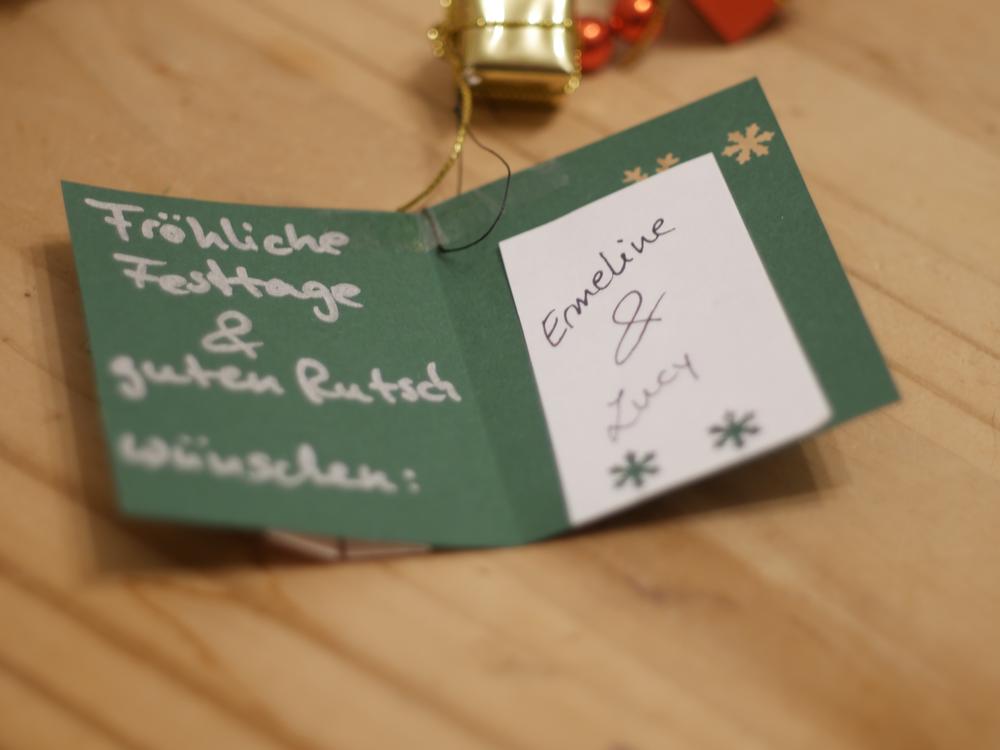 Fröhliche
Festtage
&
guten Rutsch
wünschen:
Ermeline
&
Lucy